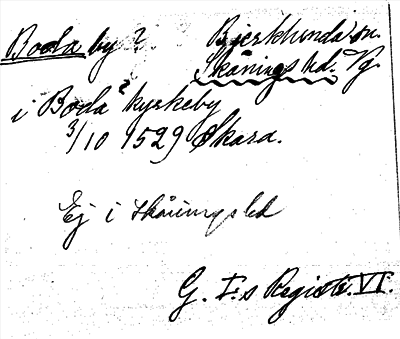 Boda by?
Bjerklunda sn.
Skånings hd. Vg.
i Boda? kyrkeby
3/10 1529 Skara.
Ej i Skåningshd
G. I:s Registr. VI.